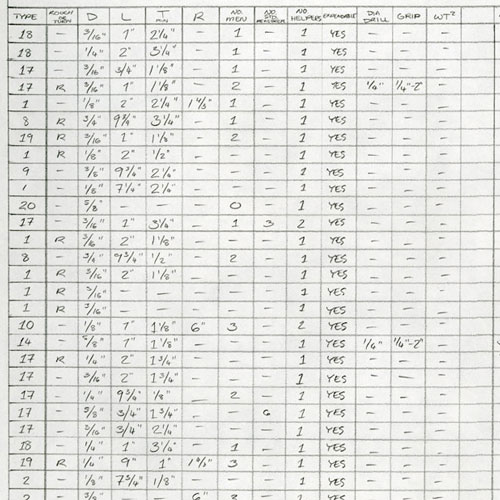 TYPE ROUGH OR TURN D L T MIN R NO. MEN NO. STD. MEASURER NO HELPERS EXPENDABLE DIA DRILL GRIP WT²
18 — 3/16" 1" 2 1/4" — 1 — 1 YES — — —
18 — 1/4" 2" 3 1/4" — 1 — 1 YES — — —
17 — 3/16" 3/4" 1 1/8" — 1 — 1 YES — — —
17 R 3/16" 1" 1 1/8" — 2 — 1 YES 1/4" 1/4"-2" —
1 — 1/8" 2" 2 1/4" 1 — 1 YES — — —
8 R 3/4" 9 3/4" 3 1/4" — 1 — 1 YES — — —
19 R 3/16" 1" 1 1/8" — 2 — 1 YES — — —
1 R 1/8" 2" 1/2" — — — 1 YES — — —
9 — 3/8" 9 3/4" 2 1/4" — — — 1 YES — — —
1 — 1/8" 7 1/4" 2 1/4" — — — 1 YES — — —
20 — 5/8" — — — 0 — 1 YES — — —
17 — 3/16" 1" 3 1/4" — 1 3 2 YES — — —
1 R 3/16" 2" 1 1/8" — — — 1 YES — — —
8 — 3/4" 9 3/4" 1/2" — 2 — 1 YES — — —
1 R 3/16" 2" 1 1/8" — — — 1 YES — — —
1 R 3/16" — — — — — 1 YES — — —
1 R 3/16" — — — — — 1 YES — — —
10 — 1/8" 1" 1 1/8" 6" 3 — 2 YES — — —
14 — 5/8" 1" 1 1/8" — — — 1 YES 1/4" 1/4"-2" —
17 R 1/4" 2" 1 3/4" — — — 1 YES — — —
17 — 3/16" 2" 1 3/4" — — — 1 YES — — —
17 — 1/4" 9 3/4" 1/8" — 2 — 1 YES — — —
17 — 5/8" 3/4" 1 3/4" — — 6 1 YES — — —
17 — 3/16" 3/4" 2 1/4" — — — 1 YES — — —
18 — 1/4" 1" 3 1/4" — 1 — 1 YES — — —
19 R 1/4" 9" 1" 3 — 1 YES — — —
2 — 1/8" 7 3/4" 1 1/8" — — — 1 YES — — —
2 — 3/4" — — 6" — 1 YES — — —